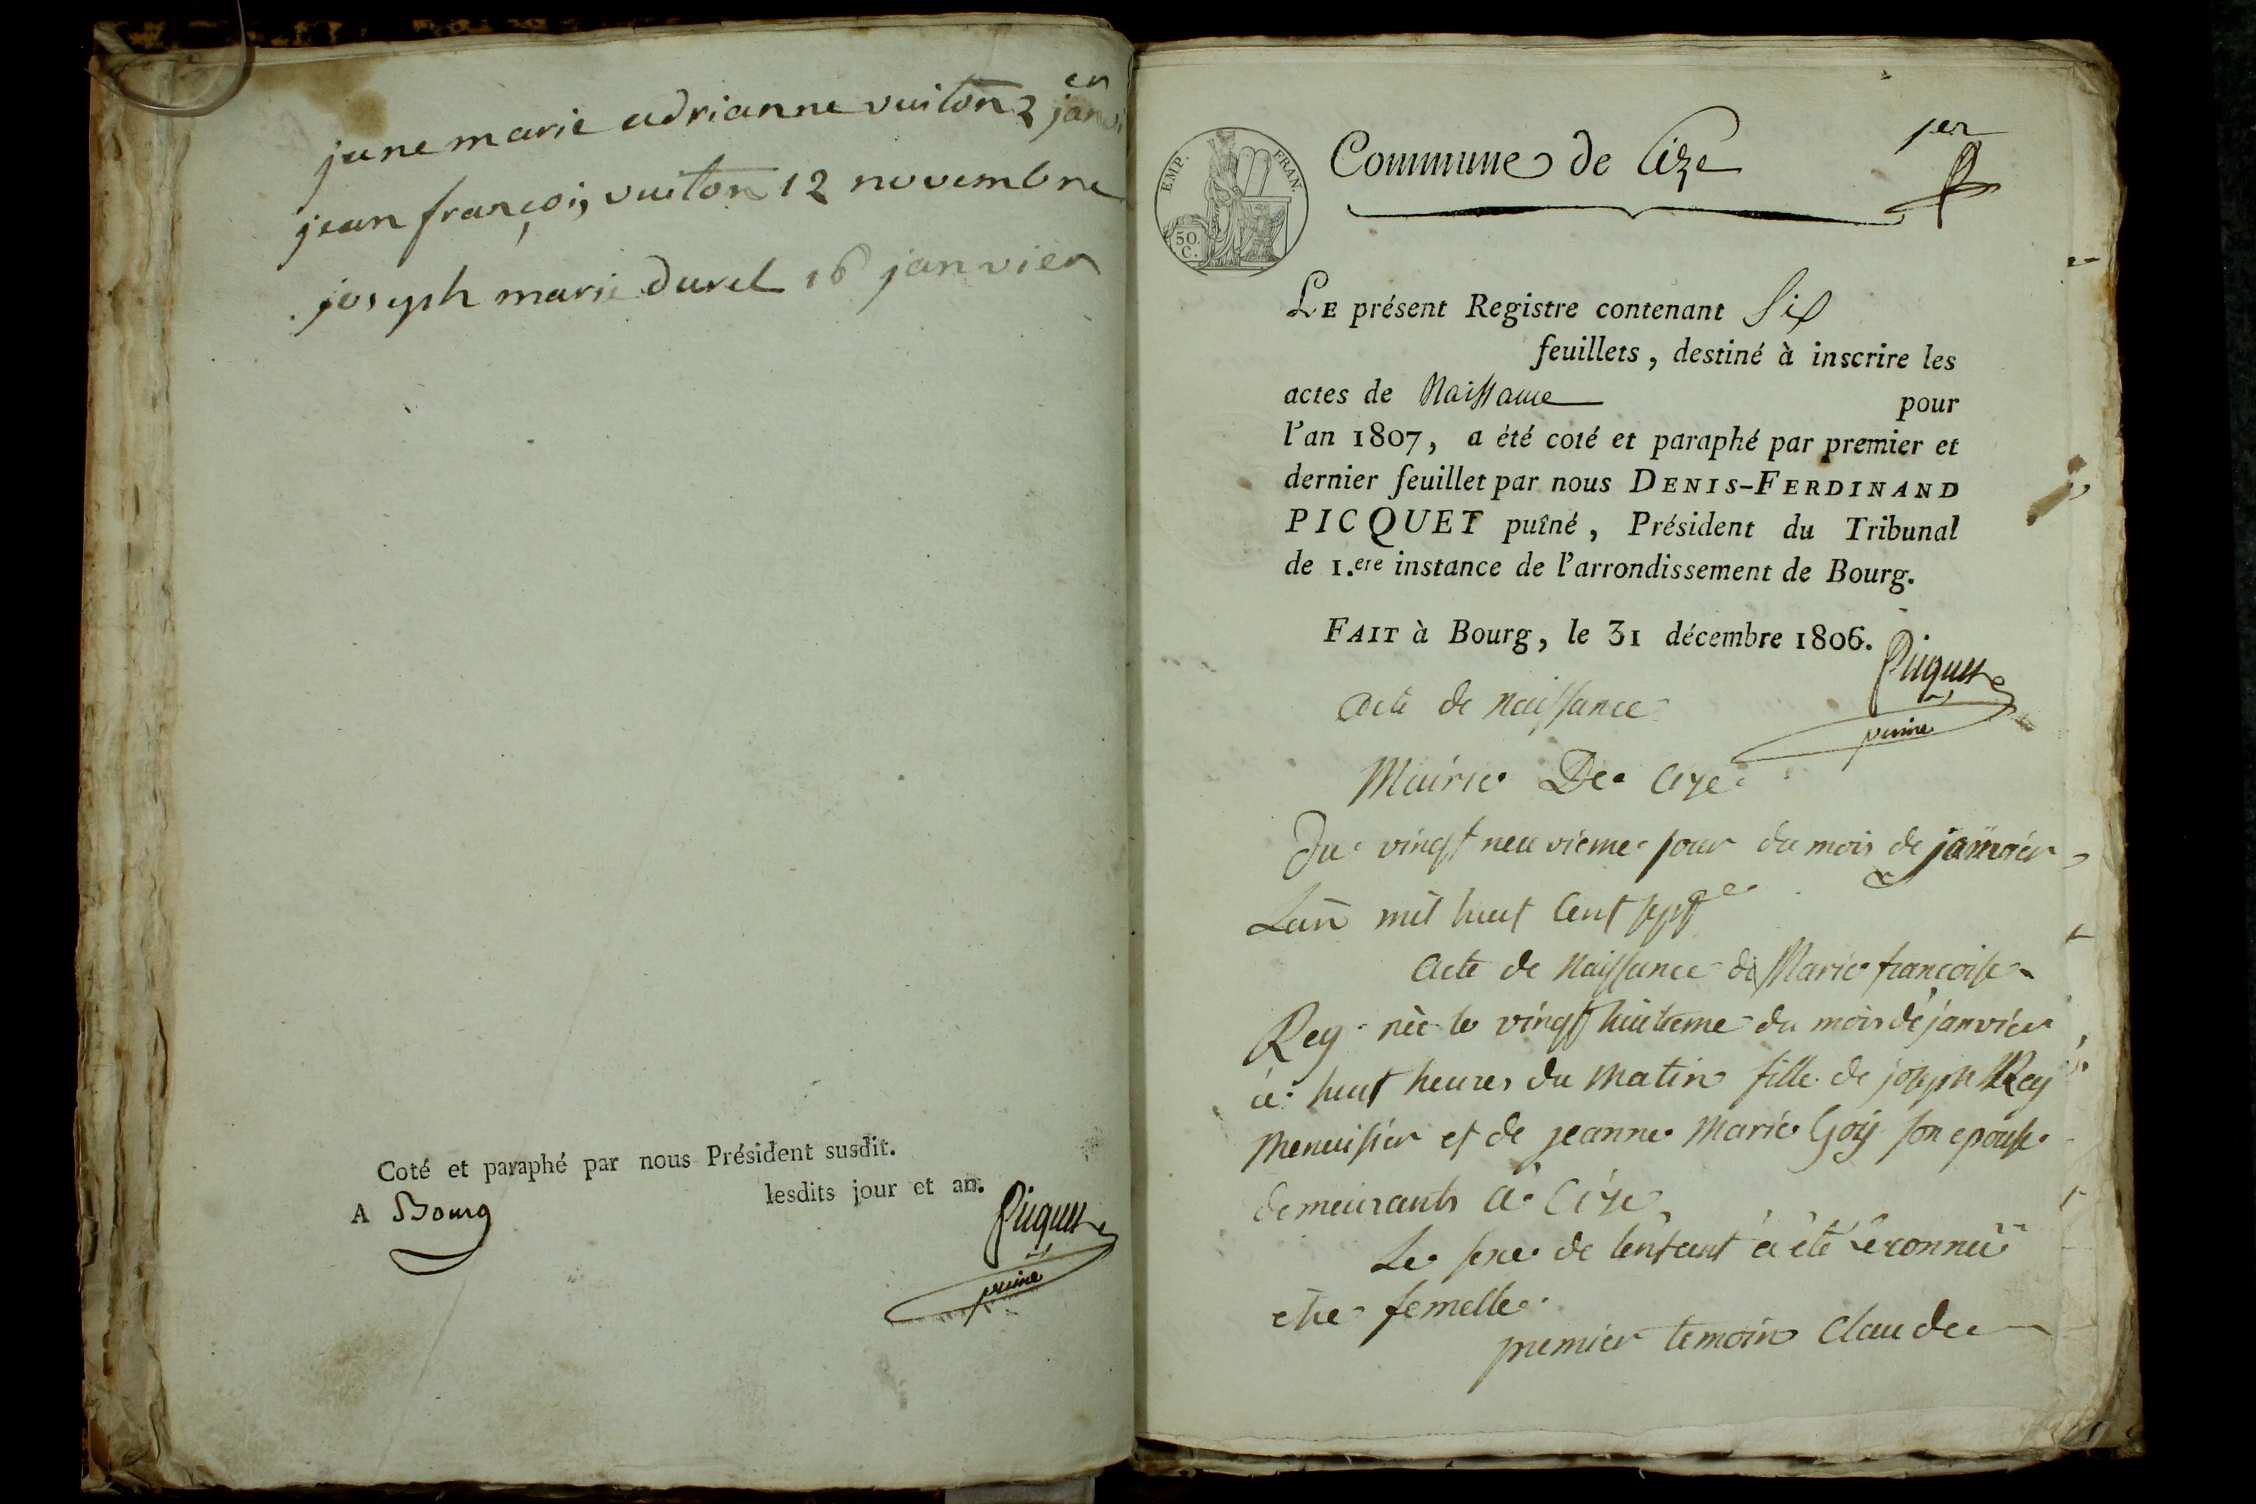 jane marie adrianne vuiton 2 janvi
er
jean françois vuiton 12 novembre
joseph marie durel 16 janvier
Coté et paraphé par nous Président susdit.
A Bourg lesdits jour et an.
Picquet
puiné
1er
Commune de Cize
EMP. FRAN.
50. C.
LE présent Registre contenant Six
feuillets, destiné à inscrire les
actes de Naissance pour
l'an 1807, a été coté et paraphé par premier et
dernier feuillet par nous DENIS-FERDINAND
PICQUET puîné, Président du Tribunal
de 1.ere instance de l'arrondissement de Bourg.
FAIT à Bourg, le 31 décembre 1806.
Picquet
puiné
acte de Naissance
Mairie De Cize
Du vingt neuvieme jour du mois de janvier
Lan mil huit Cent sept
acte de Naissance de Marie francoise
Rey née le vingt huitieme du mois de janvier
à huit heures du Matin fille de joseph Rey
Menuisier et de jeanne Marie Goy son epouse
demeurants à Cize
Le sexe de lenfant à été reconnu
etre femelle
premier temoin Claude